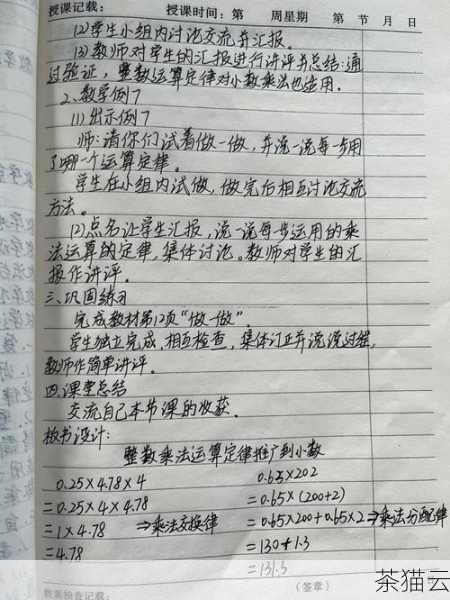 授课记载: 授课时间: 第 周星期 第 节 月 日
(2)学生小组内讨论交流并汇报。
(3)教师对学生的汇报进行讲评并总结:通
过验证,整数运算定律对小数乘法也适用。
2、教学例7
(1)出示例7
师:请你们试着做一做,并说一说每一步用
了哪一个运算定律。
学生在小组内试做,做完后相互讨论交流
方法。
(2)点名让学生汇报,说一说每步运用的乘
法运算的定律,集体讨论。教师对学生的汇
报作讲评。
三、巩固练习
完成教材第12页“做一做”。
学生独立完成,相互检查,集体订正并说说过程,
教师作简单讲评。
四、课堂总结
交流自己本节课的收获。
板书设计:
整数乘法运算定律推广到小数
0.25×4.78×4 0.65×202
=0.25×4×4.78 =0.65×(200+2)
=1×4.78 ⇒乘法交换律 =0.65×200+0.65×2⇒乘法分配律
=4.78 =130+1.3
=131.3
教案抽查记载: (签章)
茶猫云